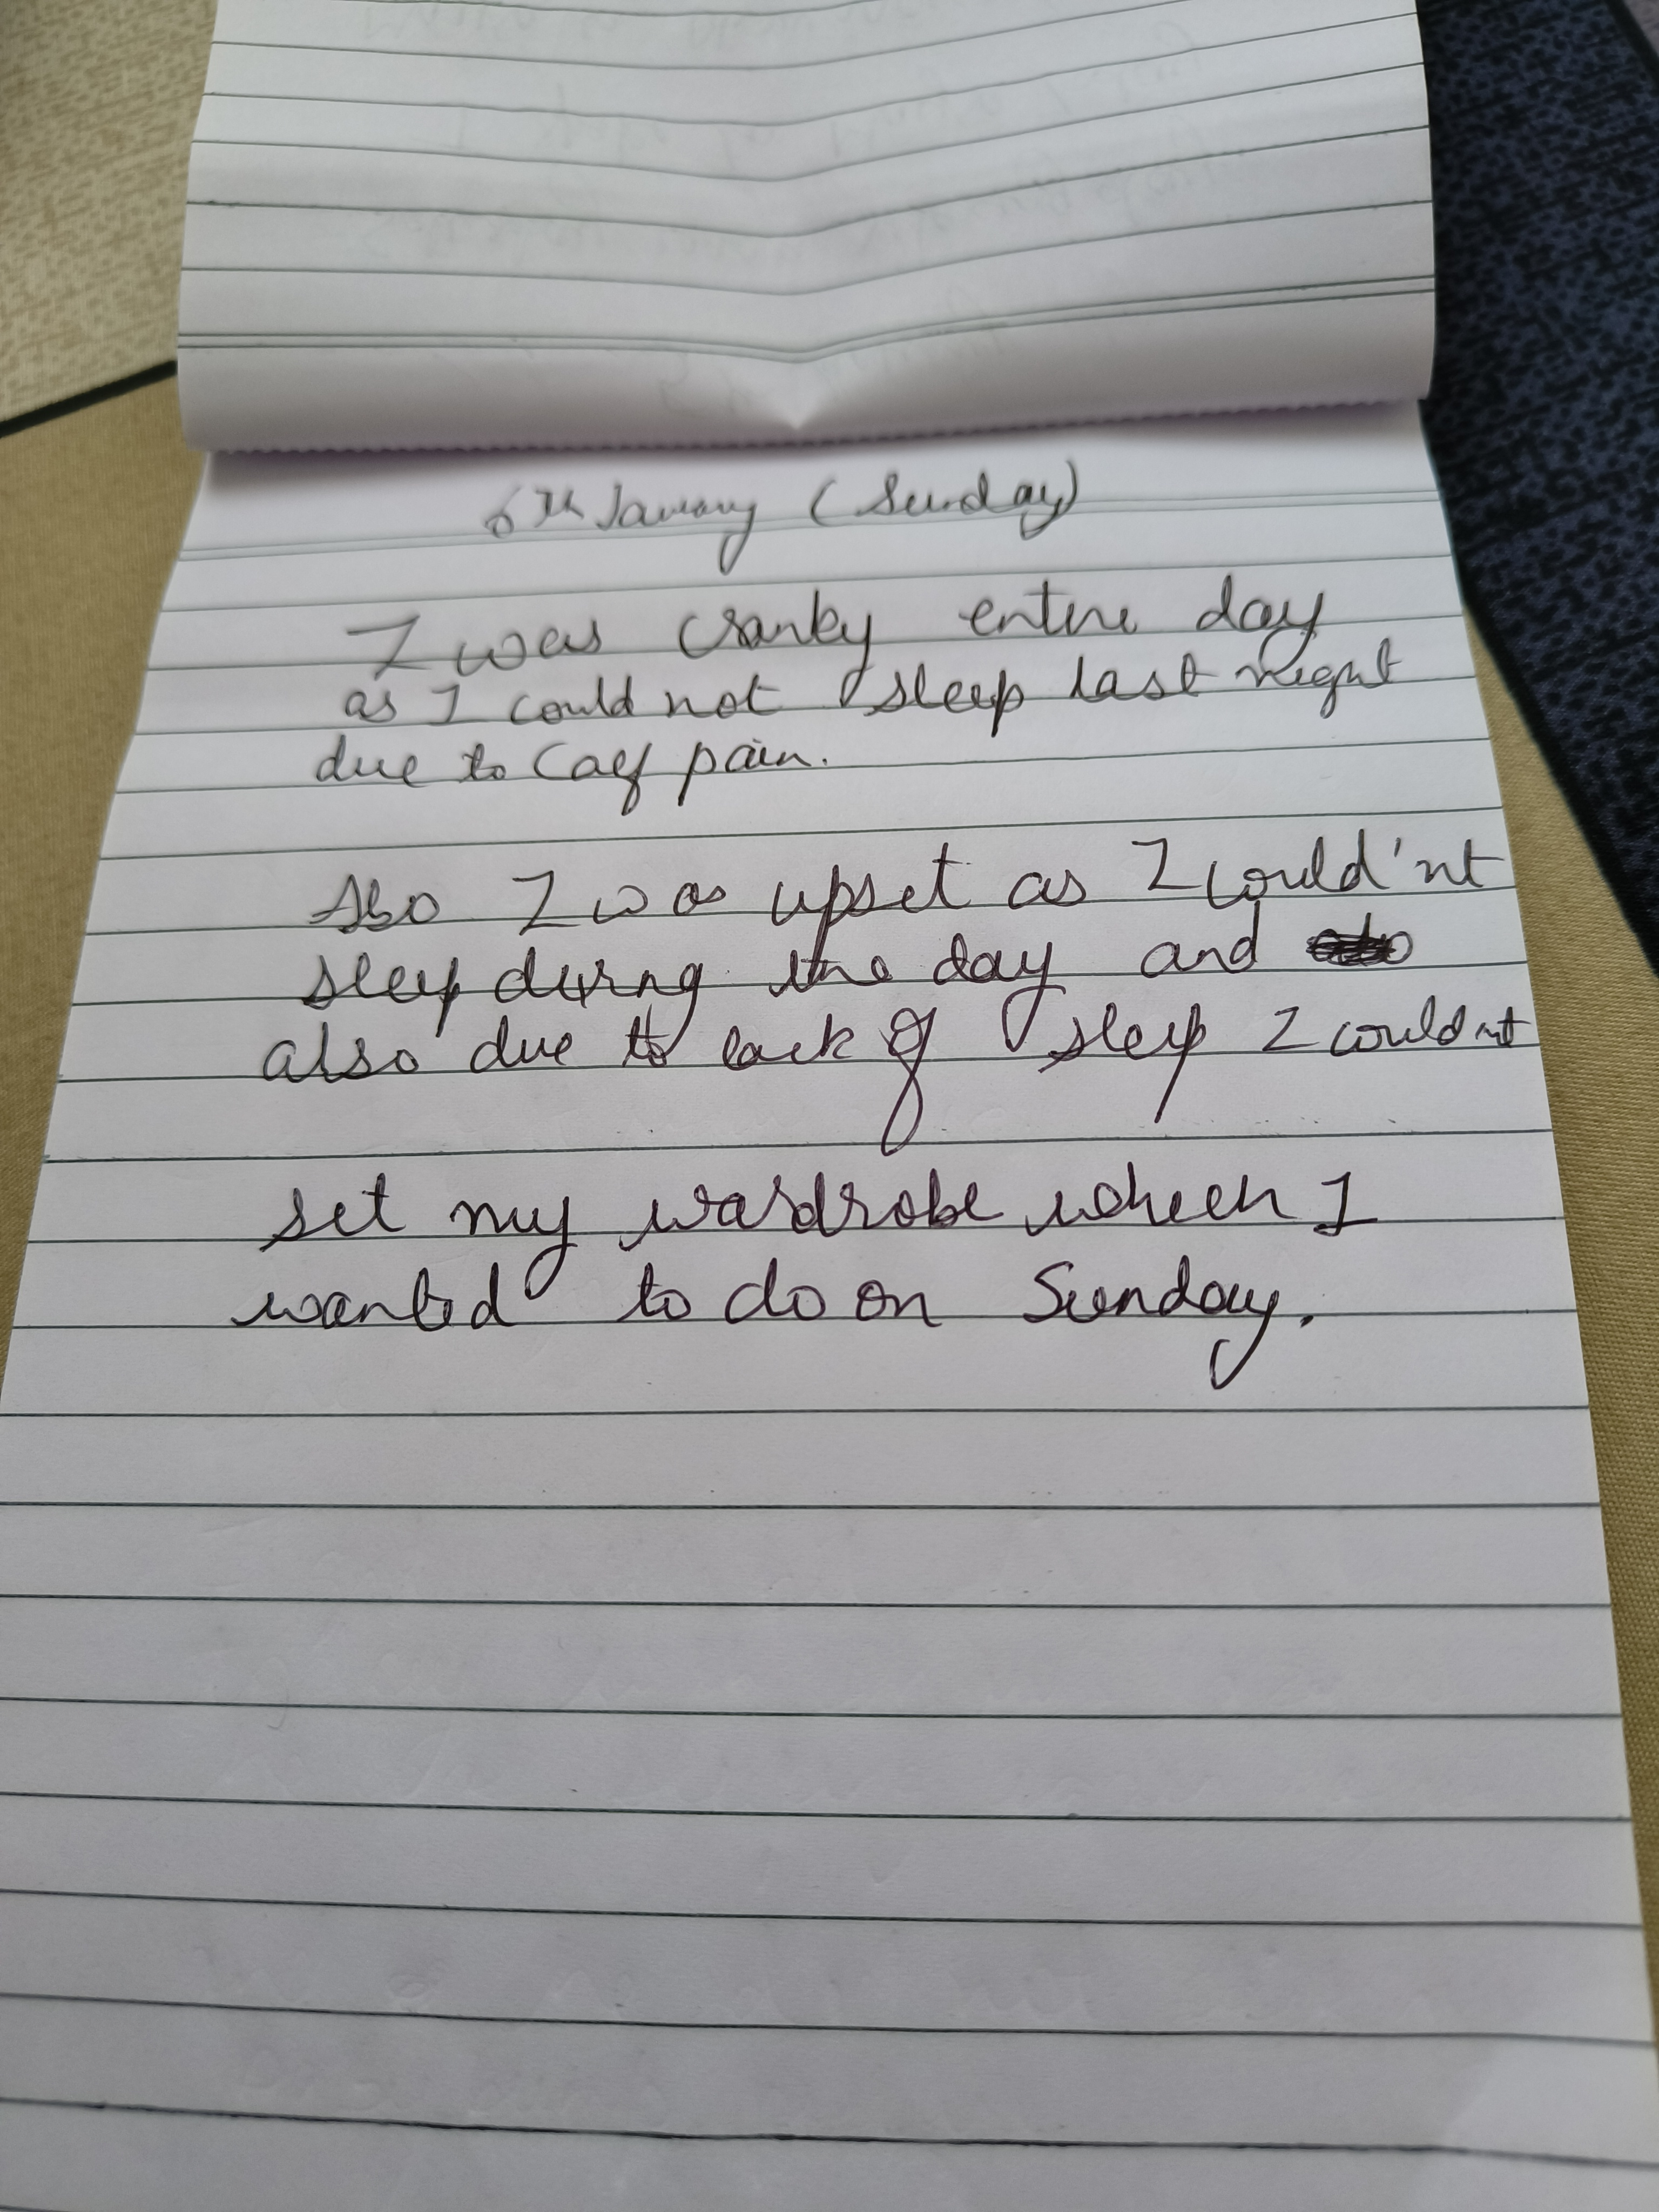 6th January (Sunday)
I was cranky entire day
as I could not sleep last night
due to Calf pain.
Also I was upset as I could'nt
sleep during the day and
also due to lack of sleep I couldnt
set my wardrobe wheen I
wanted to do on Sunday.